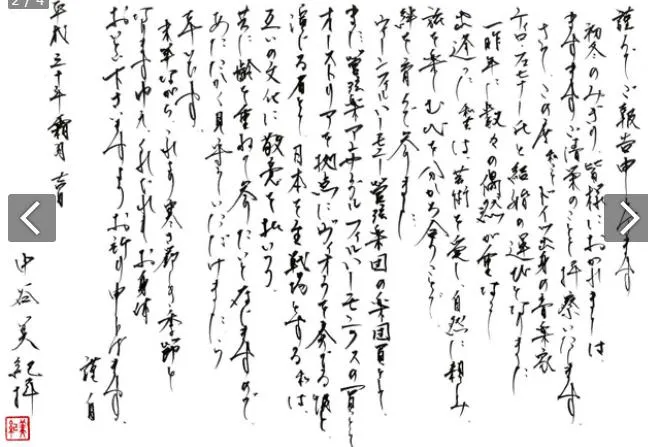 2 / 4
謹んでご報告申し上げます
初冬のみぎり、皆様におかれましては、
ますますご清栄のことと拝察いたします。
さて、この度 ドイツ出身の音楽家
ティロ・フェヒナー氏と結婚の運びとなりました。
一昨年に数々の偶然が重なり
出逢った私どもは、芸術を愛し、自然に親しみ、
旅を楽しむ心を分かち合うことで、
絆を育んで参りました。
ウィーンフィルハーモニー管弦楽団の楽団員として、
また管弦楽アンサンブルフィルハーモニクスの一員として
オーストリアを拠点にヴィオラを奏でる彼と、
演じる者として日本を主戦場とする私は、
互いの文化に敬意を払いつつ、
共に齢を重ねて参りたいと存じますので、
あたたかく見守っていただけましたら
幸いです。
末筆ながら、これより寒さ厳しき季節と
なりますゆえ、くれぐれもお身体
おいといくださいますようお祈り申し上げます。
謹白
平成三十年霜月吉日
中谷美紀拝
美紀